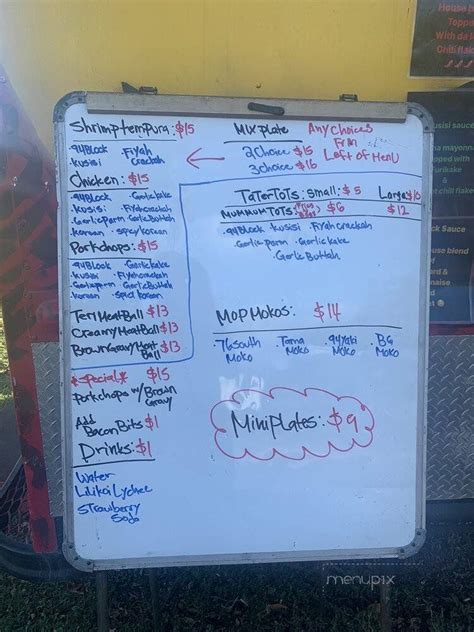 House
Topped
With da
Chili flakes
Shrimp tempura: $15
94Block Fiyah
Kusisi Crackah
Chicken: $15
94Block Garlic kake
Kusisi Fiyahcrackah
Garlic parm Garlic Buttah
Korean spicy Korean
Porkchops: $15
94Block Garlickake
Kusisi Fiyahcrackah
Garlic parm Garlic Buttah
Korean spicy Korean
Teri Meat Ball $13
Creamy Meat Ball $13
Brown Gravy Meat Ball $13
*special* $15
Porkchops w/ Brown
Gravy
Add
Bacon Bits $1
Drinks: $1
Water
Lilikoi Lychee
Strawberry
Soda
Mix Plate Any Choices
From
Left of Menu
2 Choice $15
3 choice $16
TaterTots: Small: $5 Large $10
MummumTots: $6 $12
94Block Kusisi Fiyahcrackah
Garlic parm Garlickake
Garlic Buttah
MopMokos: $14
76South Moko
Tama Moko
94Yaki Moko
BG Moko
MiniPlates: $9
usisi sauce
mayonnaise
urikake
&
ck Sauce
ouse blend
of
menupix